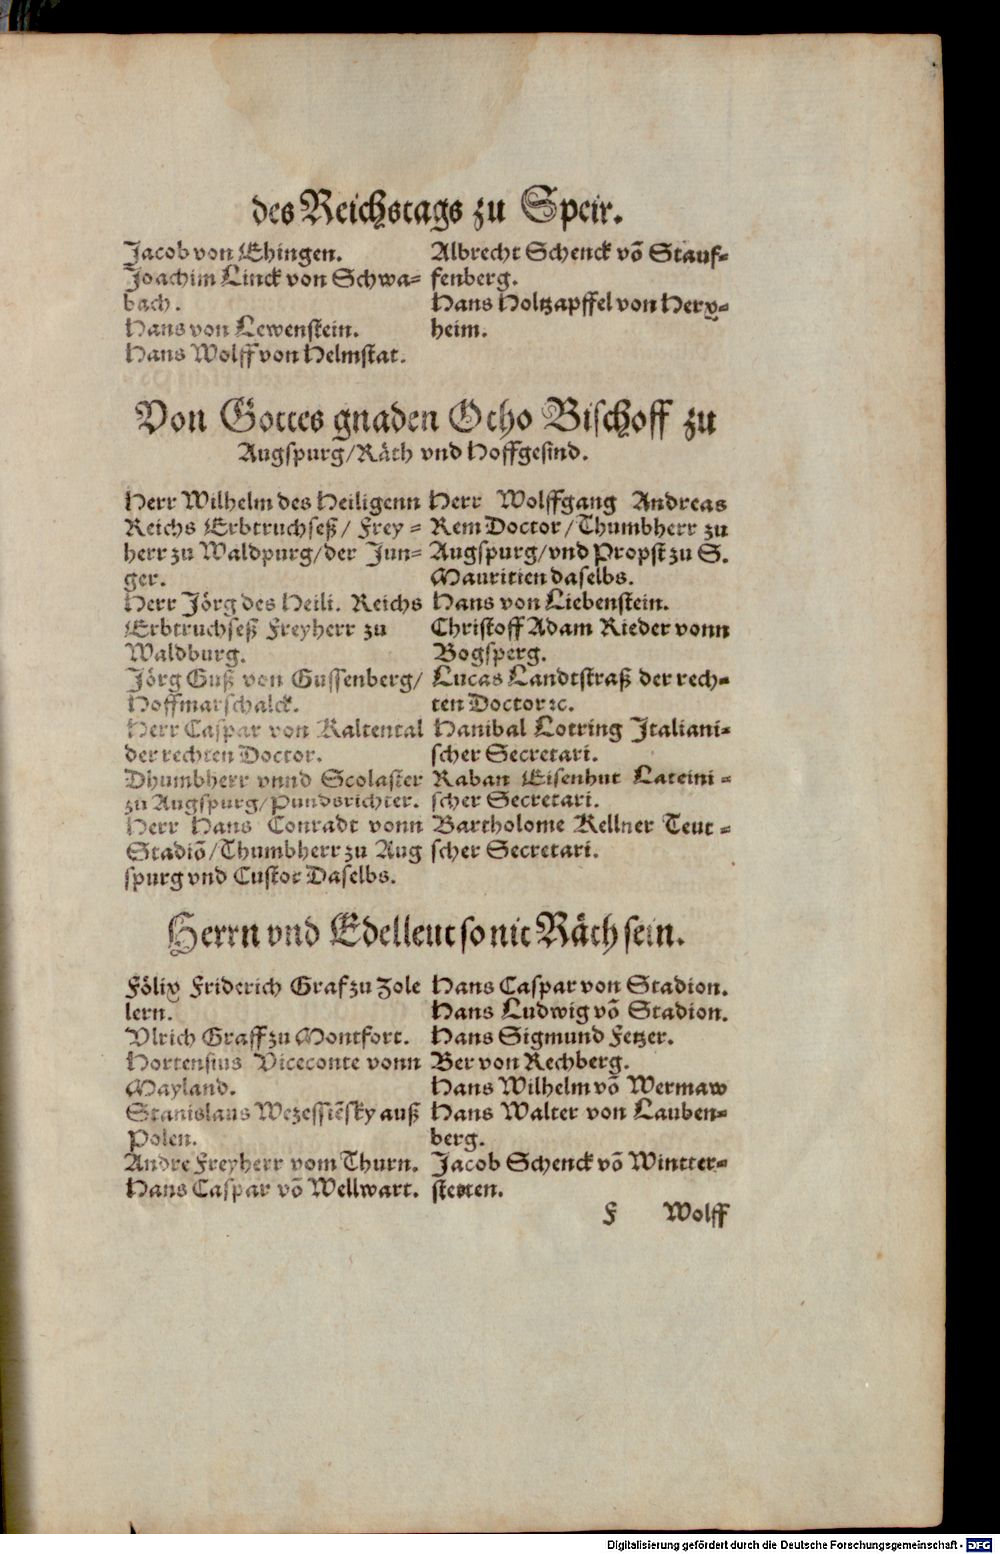 des Reichstags zu Speir.
Jacob von Ehingen.
Joachim Linck von Schwa-
bach.
Hans von Lewenstein.
Hans Wolff von Helmstat.
Albrecht Schenck võ Stauf-
fenberg.
Hans Holtzapffel von Herx-
heim.
Von Gottes gnaden Otho Bischoff zu
Augspurg/Räth vnd Hoffgesind.
Herr Wilhelm des Heiligenn
Reichs Erbtruchseß/ Frey-
herr zu Waldpurg/der Jun-
ger.
Herr Jörg des Heili. Reichs
Erbtruchseß Freyherr zu
Waldburg.
Jörg Guß von Gussenberg/
Hoffmarschalck.
Herr Caspar von Kaltental
der rechten Doctor.
Dhumbherr vnnd Scolaster
zu Augspurg/Pundsrichter.
Herr Hans Conradt vonn
Stadiõ/Thumbherr zu Aug
spurg vnd Custor Daselbs.
Herr Wolffgang Andreas
Rem Doctor/Thumbherr zu
Augspurg/vnd Propst zu S.
Mauritien daselbs.
Hans von Liebenstein.
Christoff Adam Rieder vonn
Bogsperg.
Lucas Landtstraß der rech-
ten Doctor ꝛc.
Hanibal Lotring Italiani-
scher Secretari.
Raban Eisenhut Lateini-
scher Secretari.
Bartholome Kellner Teut-
scher Secretari.
Herrn vnd Edelleut so nit Räth sein.
Fölix Friderich Graf zu Zole
lern.
Vlrich Graff zu Montfort.
Hortensius Viceconte vonn
Mayland.
Stanislaus Wezessiẽsky auß
Polen.
Andre Freyherr vom Thurn.
Hans Caspar võ Wellwart.
Hans Caspar von Stadion.
Hans Ludwig võ Stadion.
Hans Sigmund Fetzer.
Ber von Rechberg.
Hans Wilhelm võ Wermaw
Hans Walter von Lauben-
berg.
Jacob Schenck võ Wintter-
stetten.
F Wolff
Digitalisierung gefördert durch die Deutsche Forschungsgemeinschaft - DFG